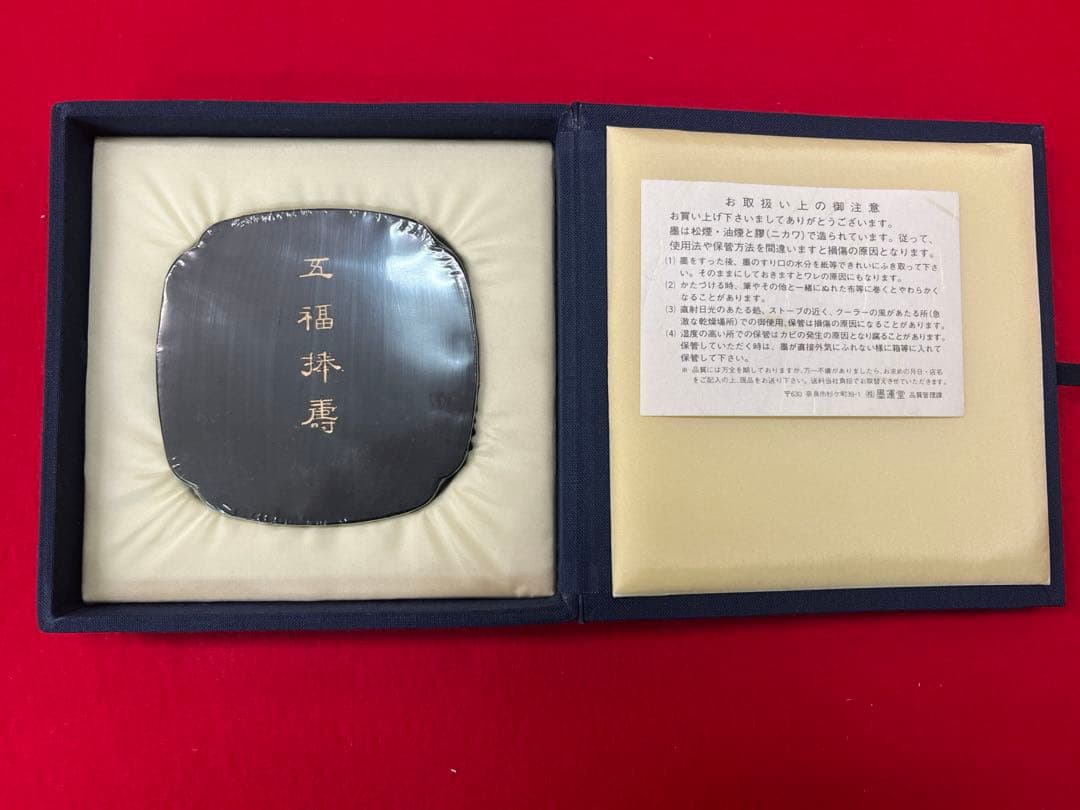 五福捧壽
お取扱い上の御注意
お買い上げ下さいましてありがとうございます。
墨は松煙・油煙と膠(ニカワ)で造られています。従って、
使用法や保管方法を間違いますと損傷の原因となります。
(1) 墨をすった後、墨のすり口の水分を紙等できれいにふき取って下さ
い。そのままにしておきますとワレの原因にもなります。
(2) かたづける時、筆やその他と一緒にぬれた布等に巻くとやわらかく
なることがあります。
(3) 直射日光のあたる処、ストーブの近く、クーラーの風があたる所(急
激な乾燥場所)での御使用、保管は損傷の原因になることがあります。
(4) 湿度の高い所での保管はカビの発生の原因となり腐ることがあります。
保管していただく時は、墨が直接外気にふれない様に箱等に入れて
保管して下さい。
※ 品質には万全を期しておりますが、万一不備がありましたら、お求めの月日・店名
をご記入の上、現品をお送り下さい。送料当社負担でお取替えさせていただきます。
〒630 奈良市杉ケ町39-1 ㈱墨運堂 品質管理課